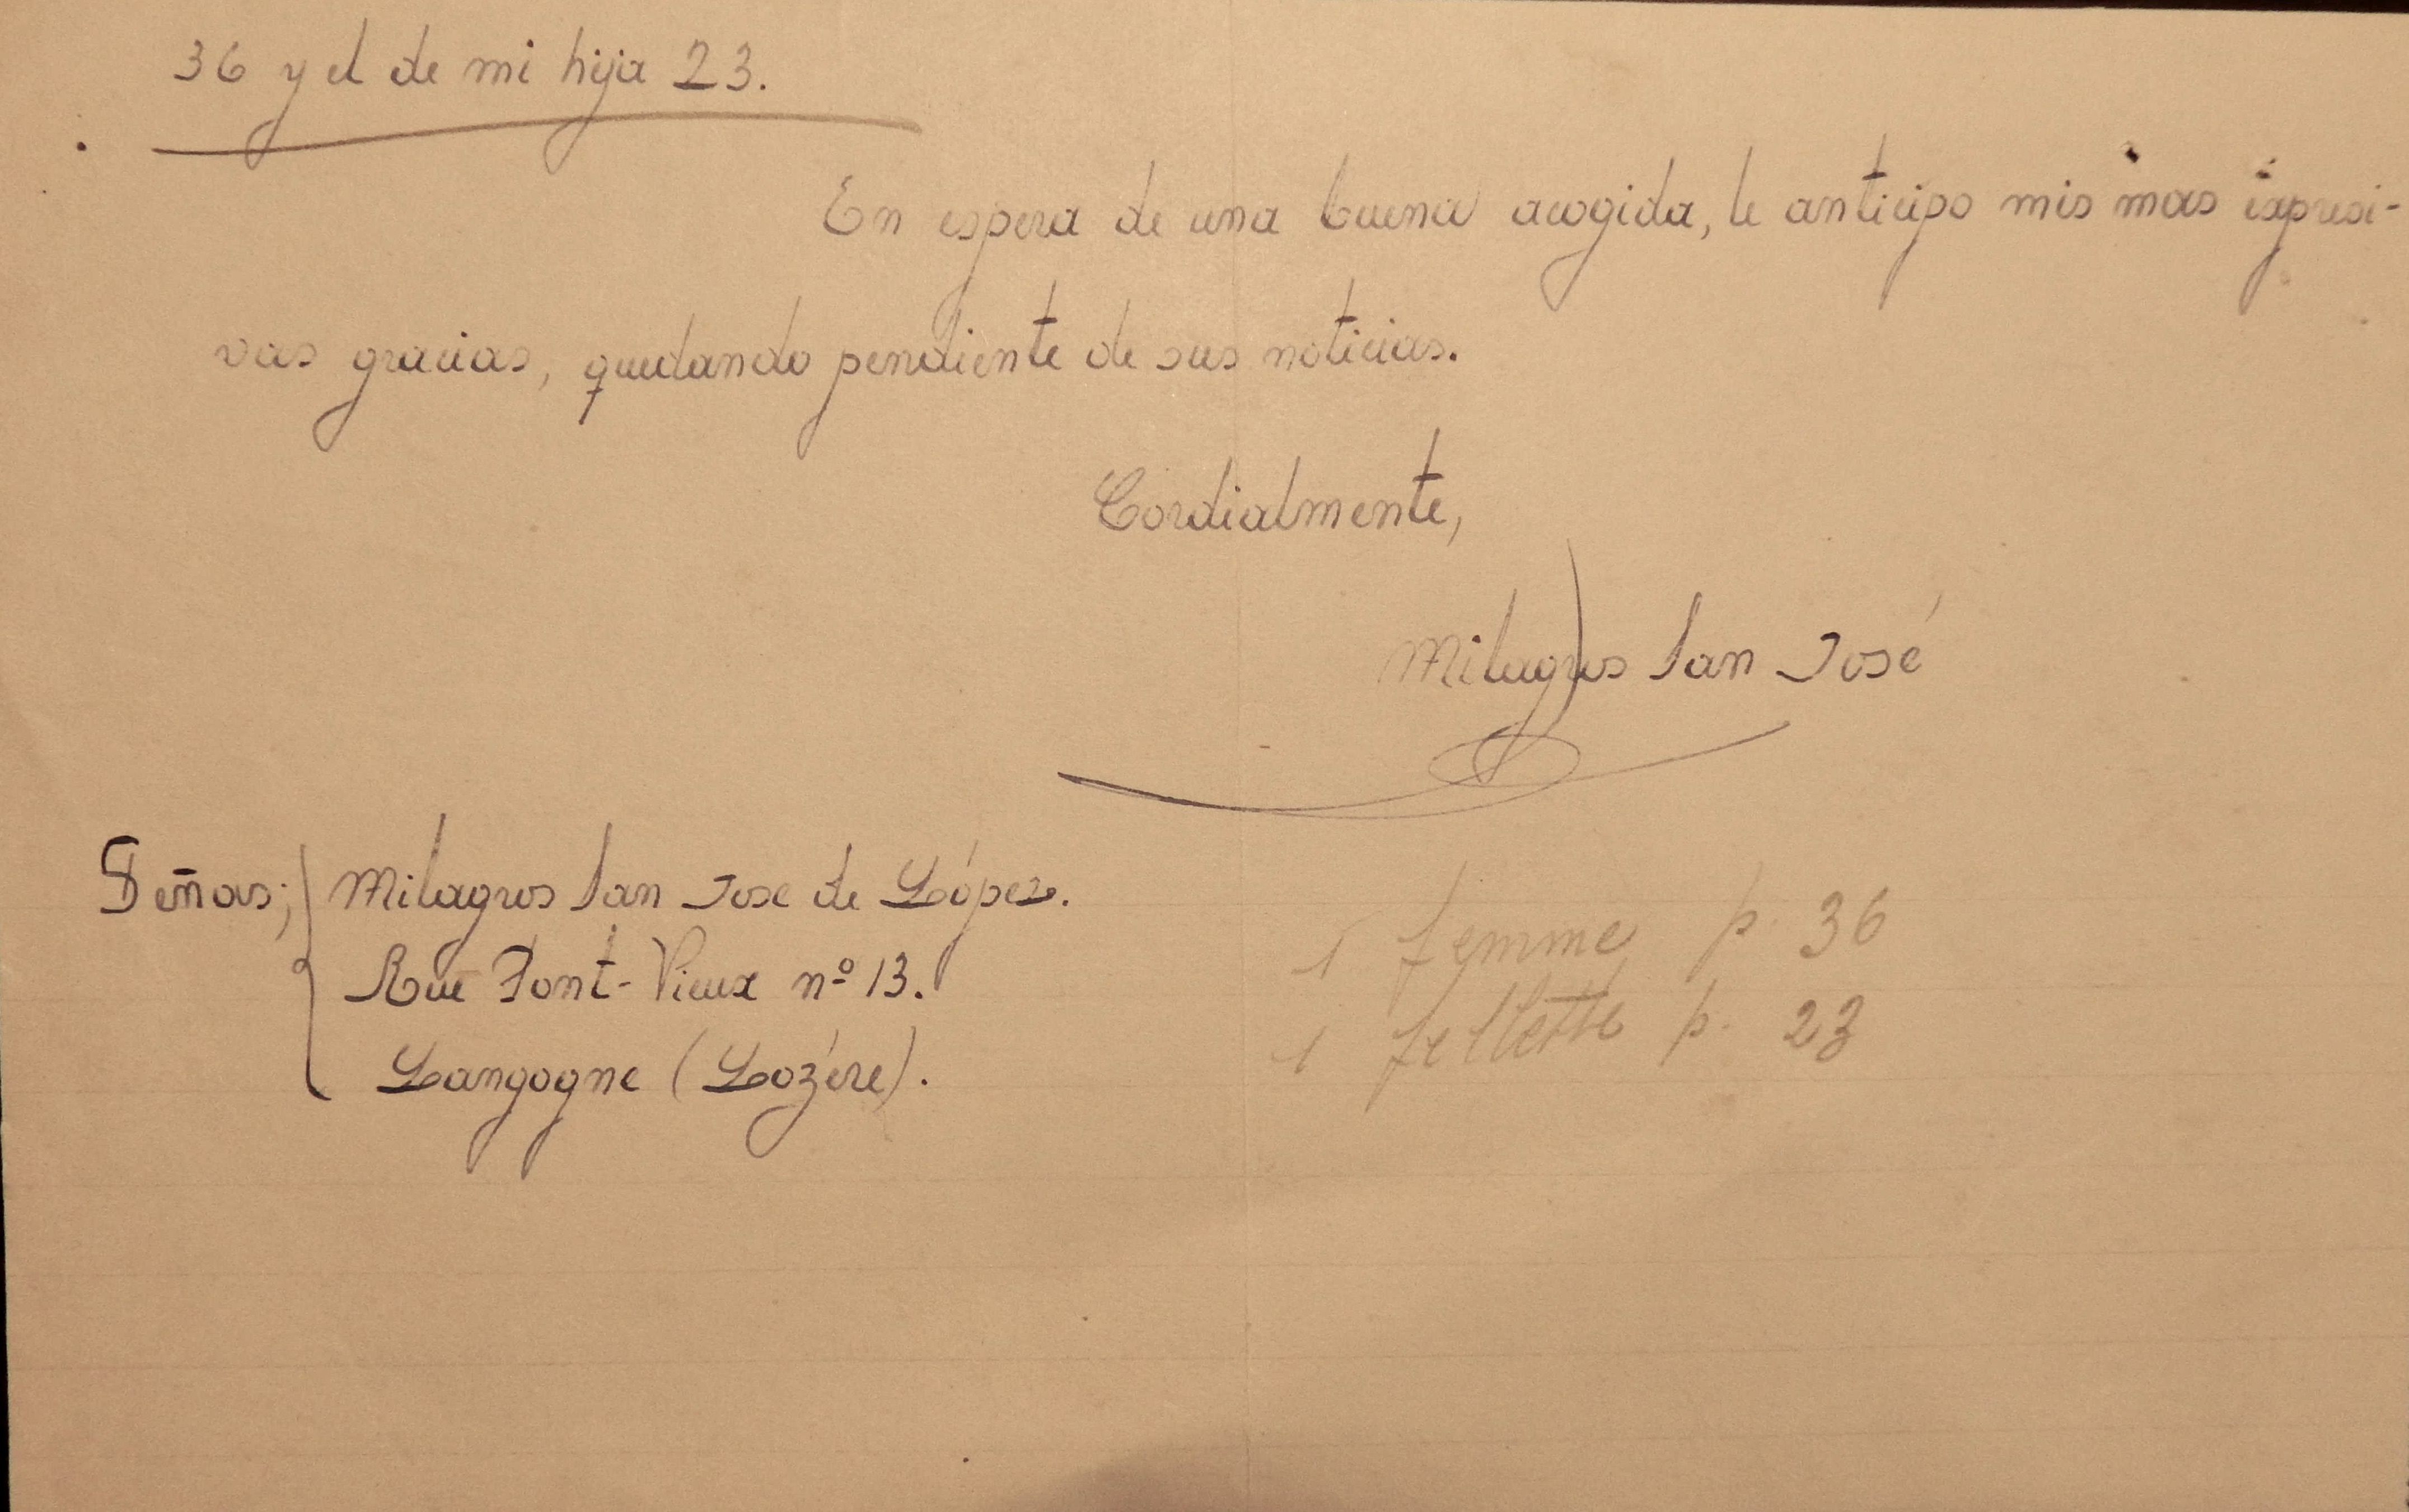 36 y el de mi hija 23.
En espera de una buena acogida, le anticipo mis mas expresi-
vas gracias, quedando pendiente de sus noticias.
Cordialmente,
Milagros San José
Señas; Milagros San Jose de López.
Rue Font-Vieux nº 13.
Langogne (Lozére).
1 femme p. 36
1 fillette p. 23